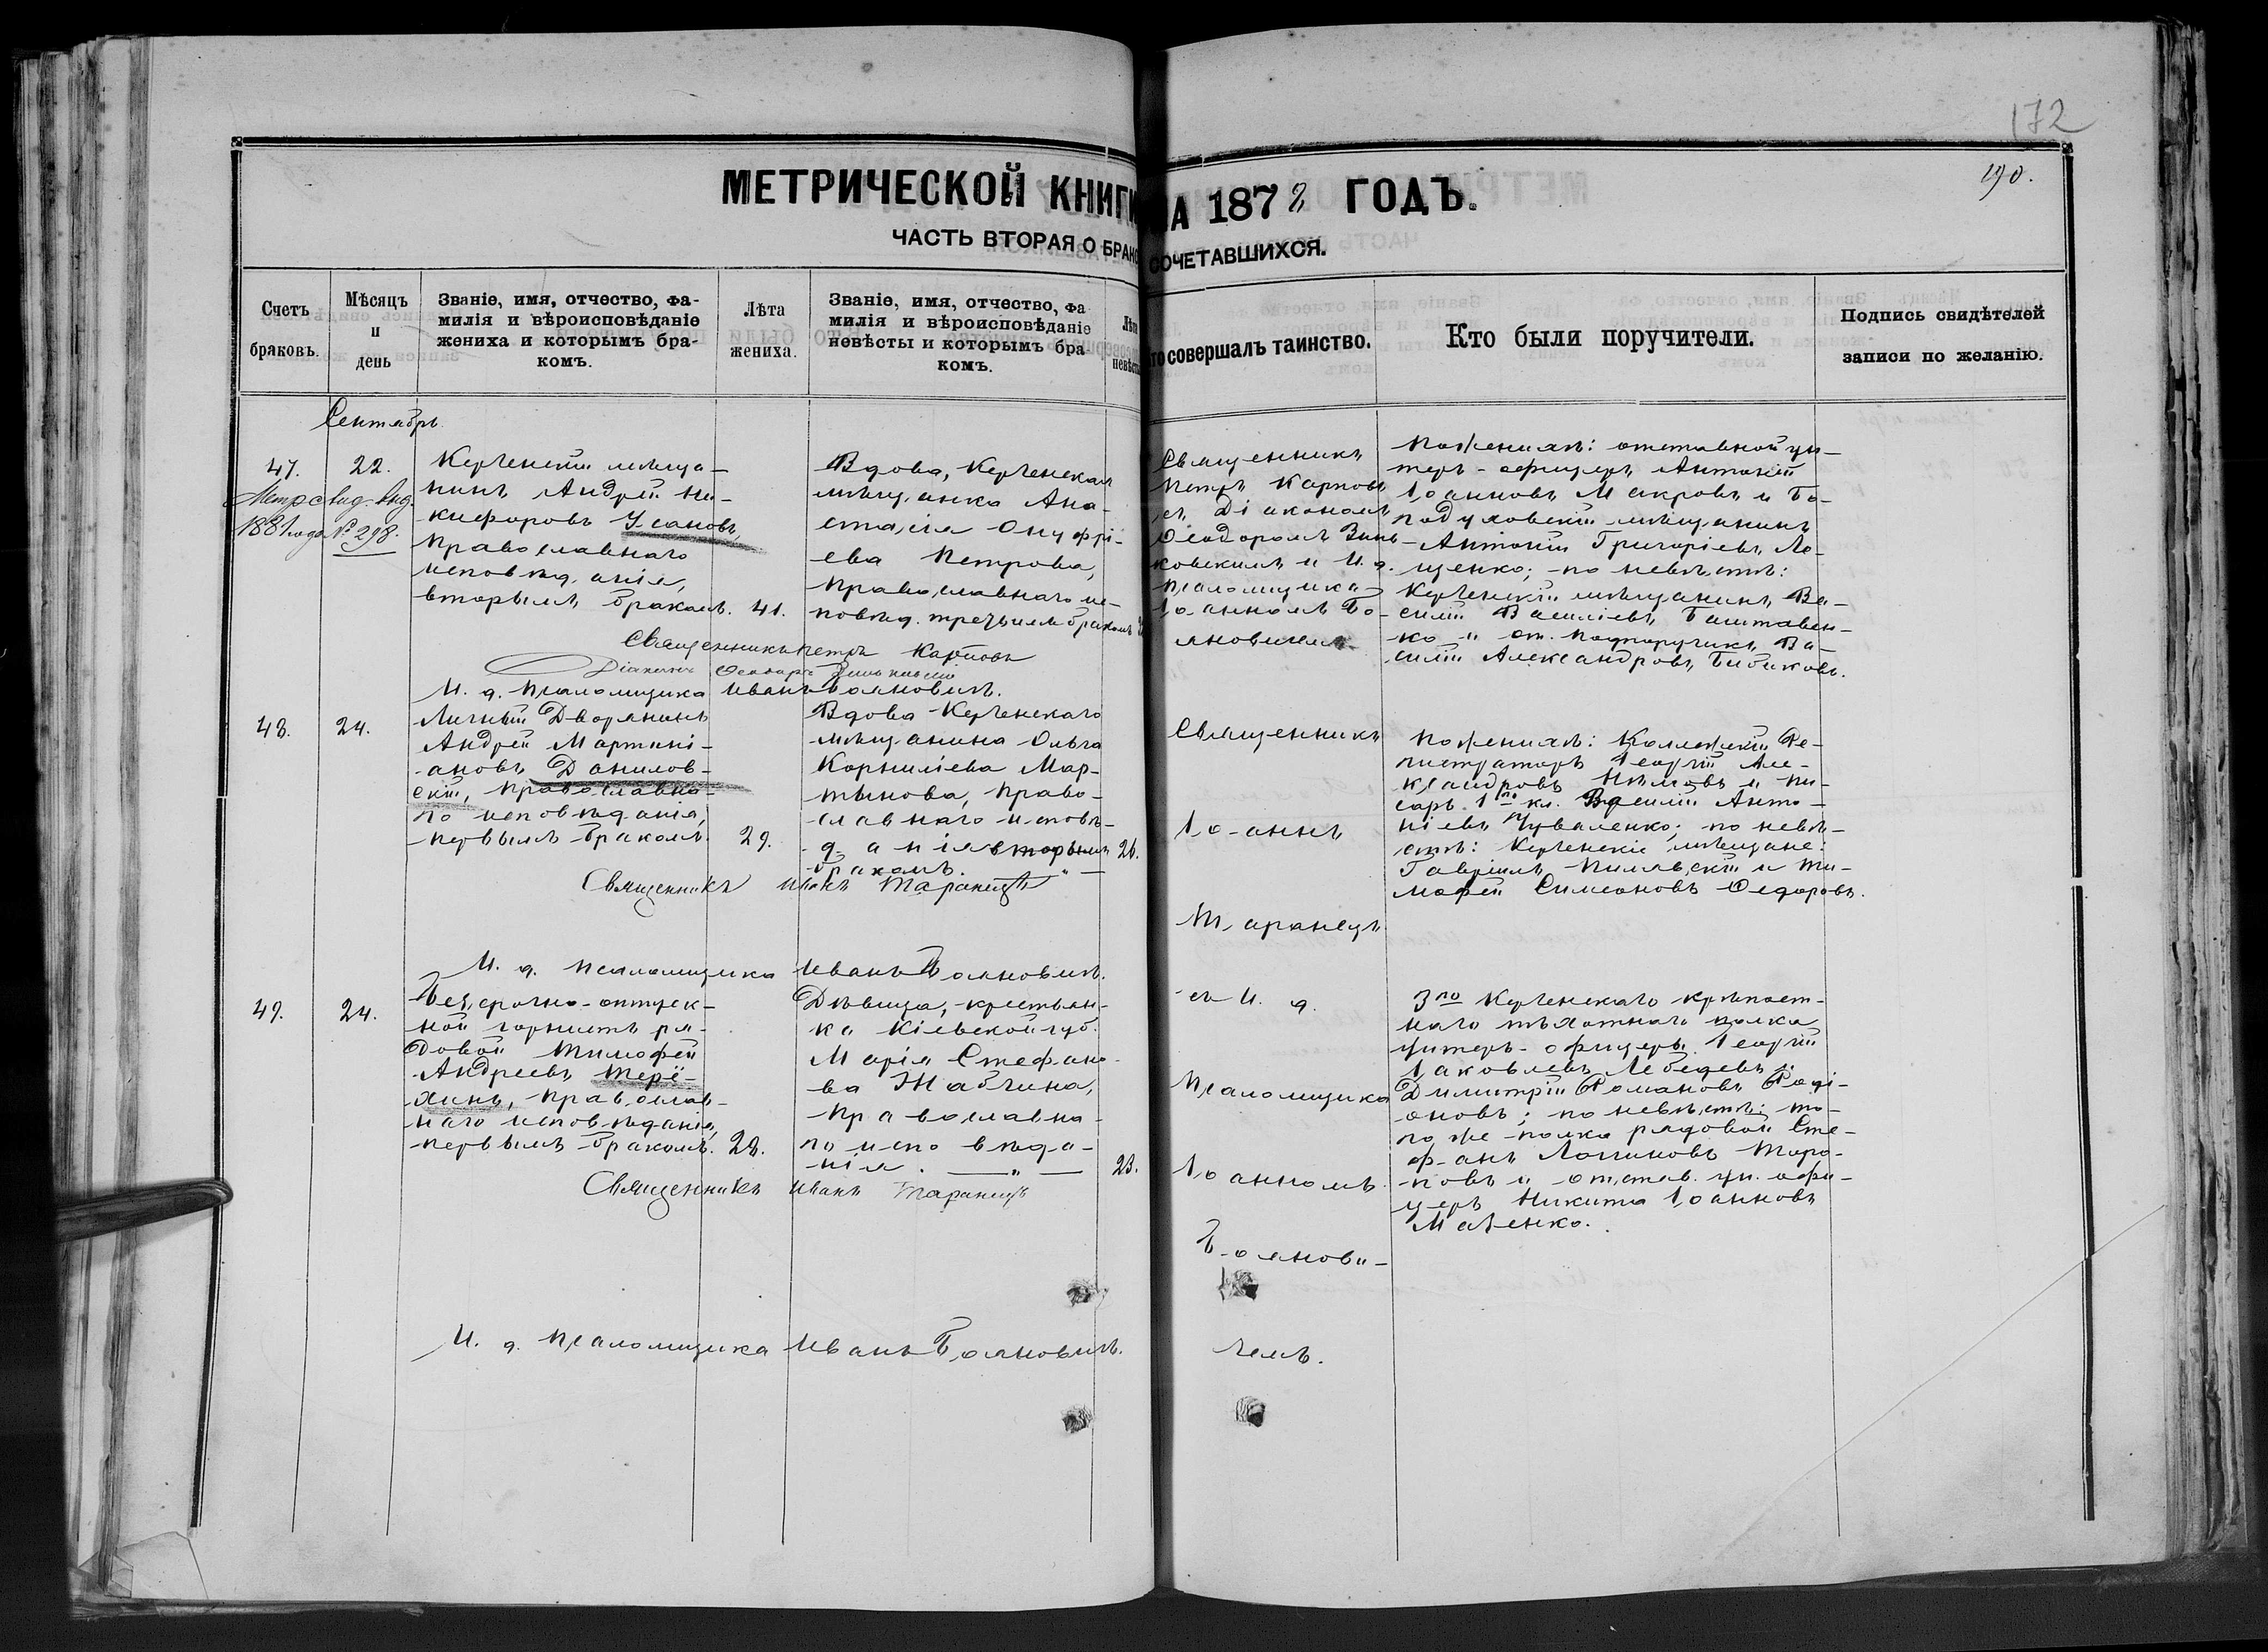 172
190.
МЕТРИЧЕСКОЙ КНИГИ НА 1872 ГОДЪ.
ЧАСТЬ ВТОРАЯ О БРАКОСОЧЕТАВШИХСЯ.
Счетъ браковъ.
Мѣсяцъ и день
Званіе, имя, отчество, фа-
милія и вѣроисповѣданіе
жениха и которымъ бра-
комъ.
Лѣта жениха.
Званіе, имя, отчество, фа
милія и вѣроисповѣданіе
невѣсты и которымъ бра-
комъ.
Лѣта невѣсты
Кто совершалъ таинство.
Кто были поручители.
Подпись свидѣтелей
записи по желанію.
Сентябрь
47.
22.
Метр свид. выд.
1881 года № 298.
Керченскій мѣща-
нинъ Андрей Ни-
кифоровъ Усановъ,
православнаго
исповѣданія,
вторымъ бракомъ.
41.
Вдова, Керченская
мѣщанка Ана-
стасія Онуфрі-
ева Петрова,
православнаго ис-
повѣд. третьимъ бракомъ
Священникъ
Петръ Карповъ
съ Діакономъ
Ѳеодоромъ Зинь-
ковскимъ и И. д.
псаломщика
Іоанномъ Бо-
яновичемъ
По женихѣ: отставной ун-
теръ-офицеръ Антоній
Іоанновъ Макровъ и Бо-
подуховскій мѣщанинъ
Антоній Григоріевъ Ло-
щенко; по невѣстѣ:
Керченскій мѣщанинъ Ва-
силій Василіевъ Баштавен-
ко и от. подпоручикъ Ва-
силій Александровъ Бибиковъ.
Священникъ Петръ Карповъ
Діаконъ Ѳеодоръ Зиньковскій
И. д. псаломщика Иванъ Бояновичъ.
48.
24.
Личный Дворянинъ
Андрей Мартині-
ановъ Данилов-
скій, православна-
го исповѣданія,
первымъ бракомъ.
29.
Вдова Керченскаго
мѣщанина Ольга
Корниліева Мар-
тынова, право-
славнаго исповѣ-
данія вторымъ
бракомъ. — " —
26.
Священникъ
Іоаннъ
Таранецъ
По женихѣ: Коллежскій Ре-
гистраторъ Георгій Але-
ксандровъ Нѣмовъ и пи-
сарь 1го кл. Василій Анто-
ніевъ Чуваленко; по невѣ-
стѣ: Керченскіе мѣщане:
Гавріилъ Пилявскій и Ти-
моѳей Симеоновъ Ѳедоровъ.
Священникъ Иванъ Таранецъ
И. д. псаломщика Иванъ Бояновичъ.
49.
24.
Безсрочно-отпуск-
ной горнистъ ря-
довой Тимофей
Андреевъ Терё-
хинъ, православ-
наго исповѣданія,
первымъ бракомъ.
28.
Дѣвица, крестьян-
ка Кіевской губ.
Марія Стефано-
ва Жабчина,
православна-
го исповѣда-
нія. — " —
23.
съ И. д.
псаломщика
Іоанномъ
Боянови-
чемъ.
3го Керченскаго крѣпост-
наго пѣхотнаго полка
унтеръ-офицеры Георгій
Іаковлевъ Лебедевъ и
Димитрій Романовъ Родi-
оновъ; по невѣстѣ: то-
го же полка рядовой Сте-
фанъ Логиновъ Таро-
повъ и отстав. ун. офи-
церъ Никита Іоанновъ
Мазенко.
Священникъ Иванъ Таранецъ
И. д. псаломщика Иванъ Бояновичъ.